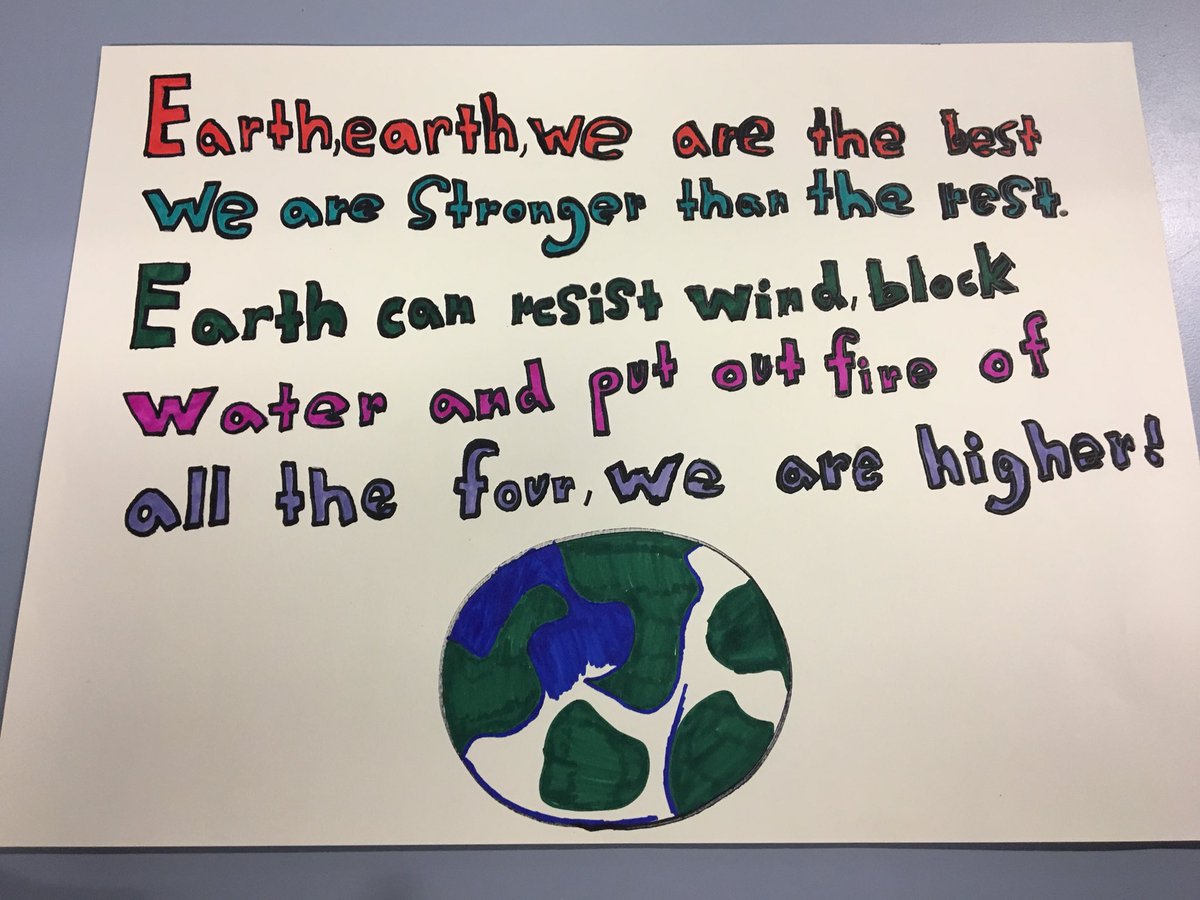 Earth, earth, we are the best
We are Stronger than the rest.
Earth can resist wind, block
Water and put out fire of
all the four, we are higher!